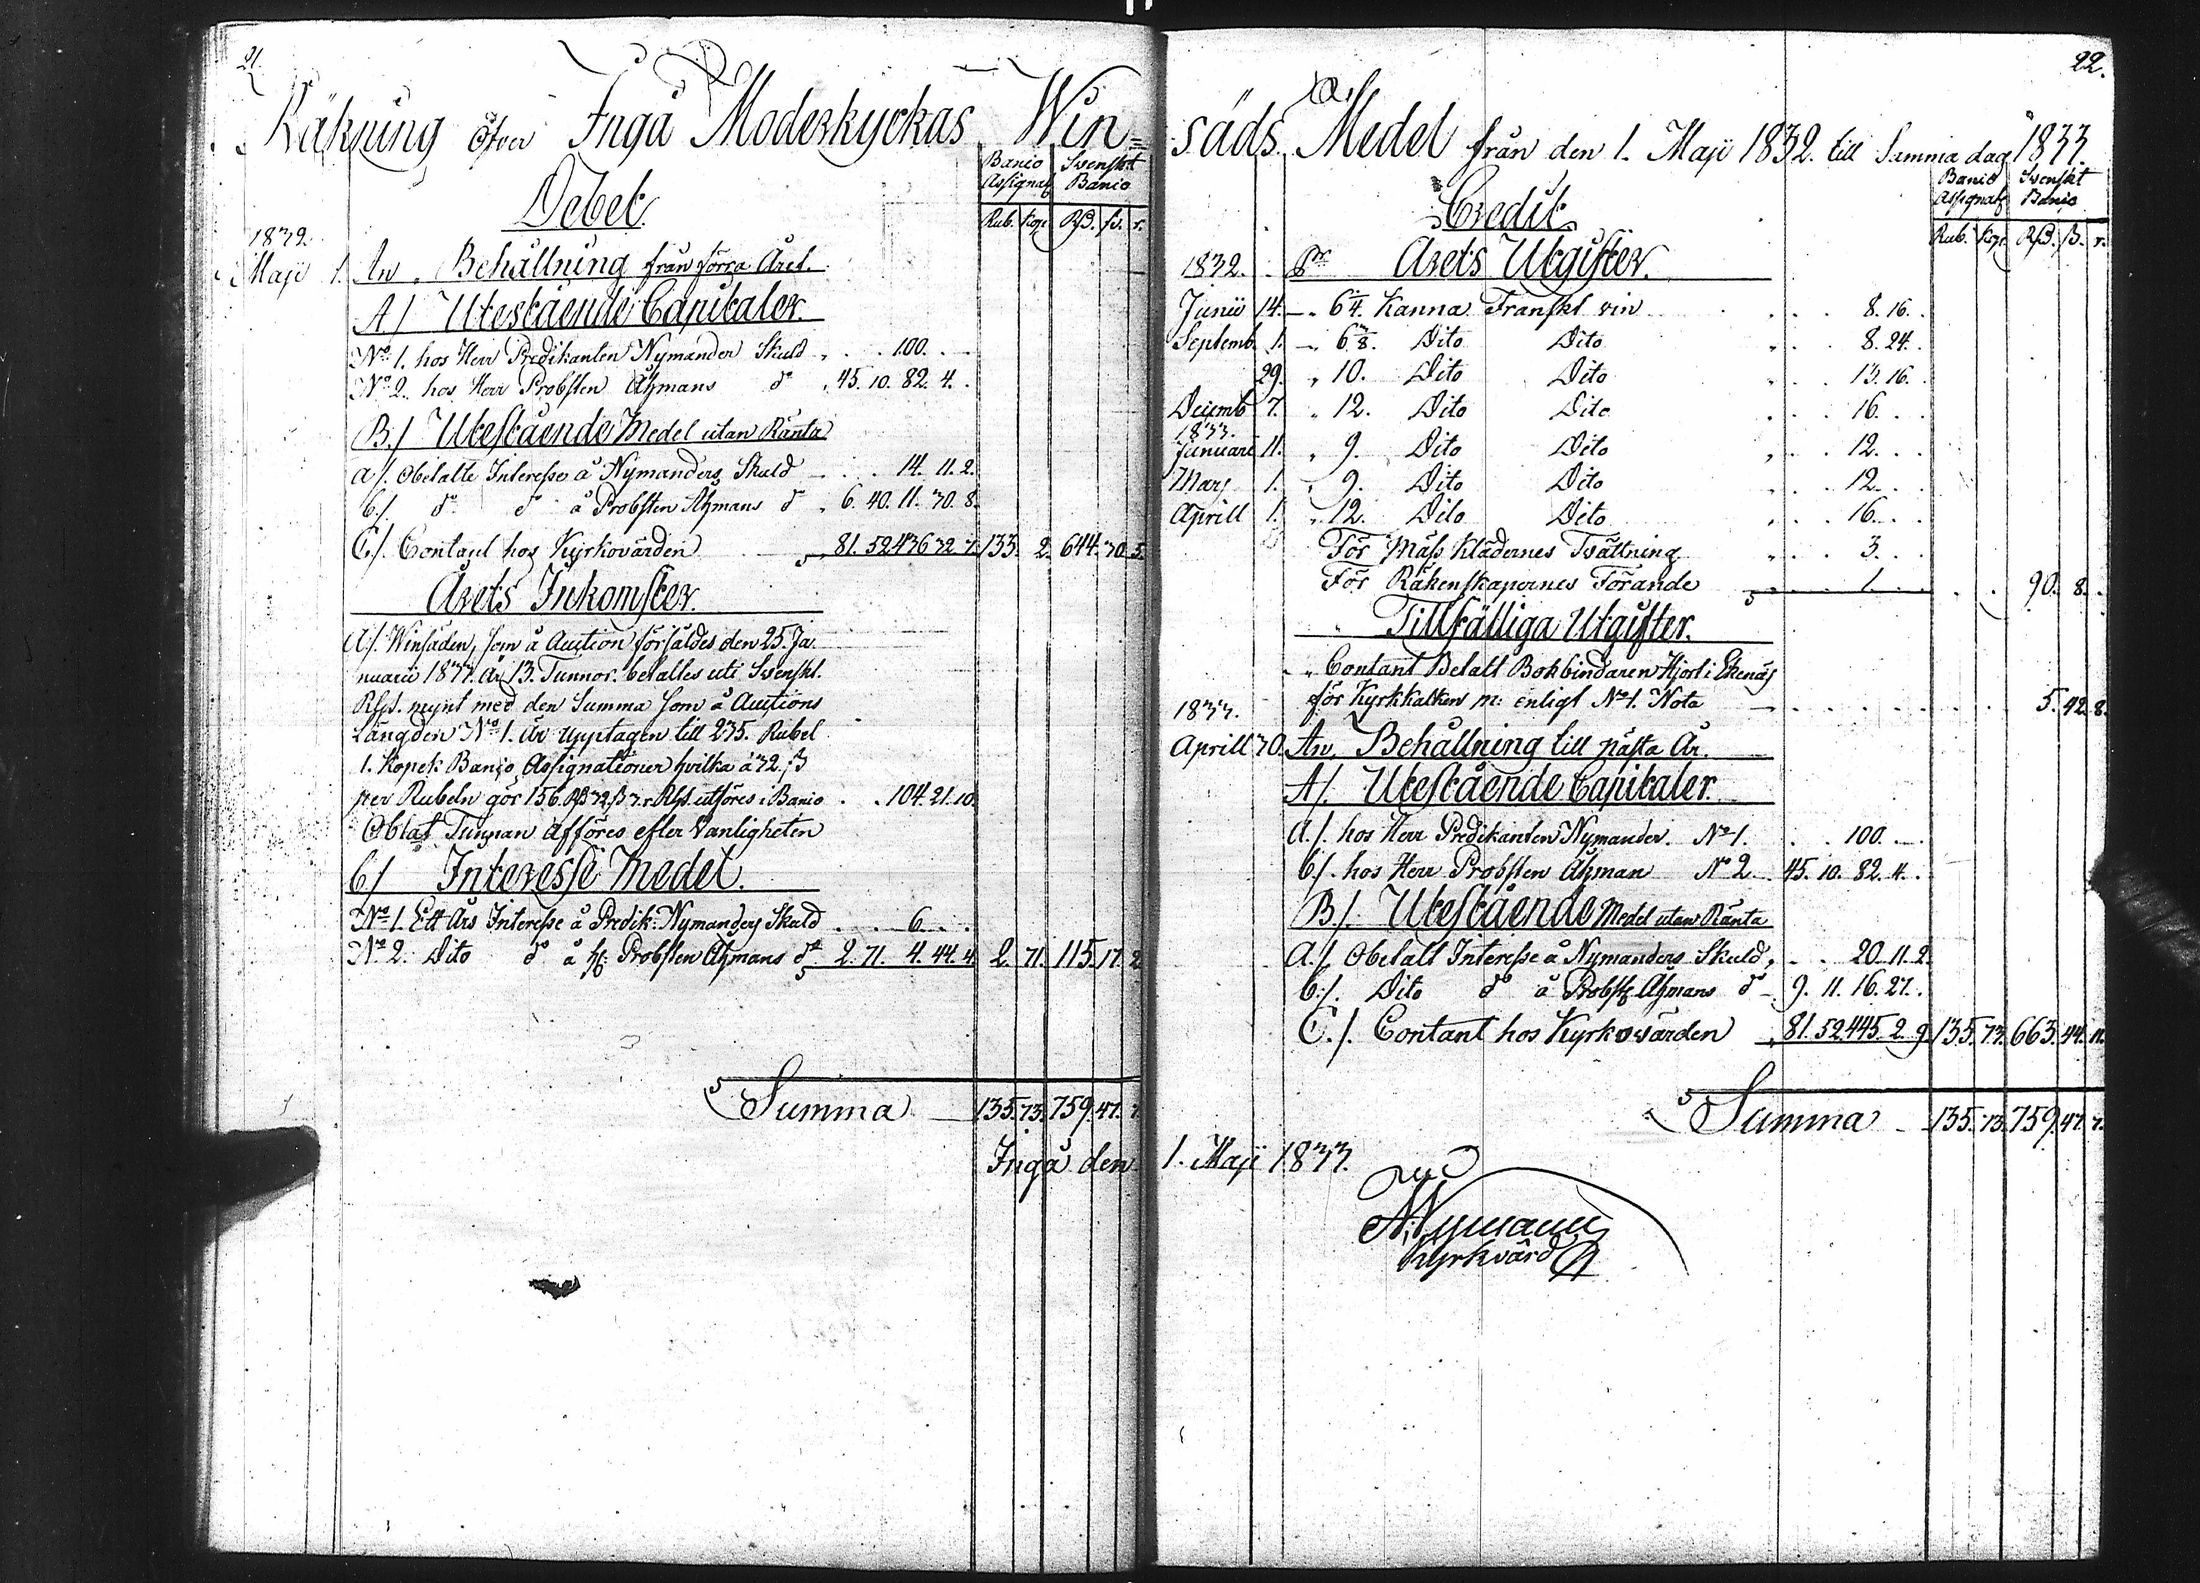 21.
Räkning öfver Ingå Moderkyrkas Win=
Debet.
Banco Assignat. Svenskt Banco
Rub. Kop. Rß. ß. r.
1832.
Maji 1. An Behållning från förra Året.
A/. Utestående Capitaler.
No 1. hos Herr Predikanten Nymander Skuld . . 100. . -
No 2. hos Herr Probsten Åhmans do 45. 10. 82. 4. .
B./ Utestående Medel utan Ränta
a/. Obetalte Interesse å Nymanders Skuld . . 14. 11. 2.
b./. do do å Probsten Åhmans do 6. 40. 11. 30. 8.
C/. Contant hos Kyrkovärden 81. 52. 436. 32. 3. 133. 2. 644. 30. 5.
Årets Inkomster.
a/. Winsäden, som å Auction försåldes den 25. Ja
nuarii 1833. är 13. Tunnor. betaltes uti Svenskt.
Rgs. mynt med den Summa som å Auctions
Längden No 1. är upptagen till 235. Rubel
1. Kopek Banco Assignationer hvilka á 32. ß
per Rubeln gör 156. Rß 32. ß 3. r. Rgs. utföres i Banco . . 104. 21. 10.
Oblat Tunnan afföres efter Vanligheten
b/ Interesse Medel.
No 1. Ett Års Interesse å Predik: Nymanders Skuld . . 6. . .
No 2. Dito do å H: Probsten Åhmans do 2. 71. 4. 44. 4. 2. 71. 115. 17. 2.
Summa 135. 73. 759. 47. 7.
Ingå den
22.
säds Medel från den 1. Maji 1832. till Samma dag 1833.
Credit.
Banco Assignat. Svenskt Banco
Rub. Kop. Rß. ß. r.
1832. Pr Årets Utgifter.
Junii 14. - 6 1/4. Kanna Franskt vin . . . 8. 16. .
Septemb. 1. - 6 3/8. Dito Dito . . . 8. 24. .
29. " 10. Dito Dito . . . 13. 16. .
Decemb 7. " 12. Dito Dito . . . 16. . .
1833.
Januari 11. " 9. Dito Dito . . . 12. . .
Mars 1. " 9. Dito Dito . . . 12. . .
Aprill 1. " 12. Dito Dito . . . 16. . .
För Mäss Klädernes Tvättning . . . 3. . .
För Räkenskapernes Förande . . . 1. . . 90. 8. .
Tillfälliga Utgifter.
" Contant Betalt Bokbindaren Hjort i Ekenäs
för Kyrkkalken m: enligt No 1. Nota 5. 42. 8.
1833.
Aprill 30. An Behållning till nästa År.
A/. Utestående Capitaler.
a./. hos Herr Predikanten Nymander. No 1. . . 100. . .
b/. hos Herr Probsten Åhman No 2. 45. 10. 82. 4. .
B/. Utestående Medel utan Ränta
a./. Obetalt Interesse å Nymanders Skuld . . 20. 11. 2.
b./. Dito do å Probst: Åhmans do 9. 11. 16. 27. .
C./. Contant hos Kyrkovärden 81. 52. 445. 2. 9. 135. 73. 663. 44. 11.
Summa 135. 73. 759. 47. 7.
1. Maji 1833.
Kyrkvärd